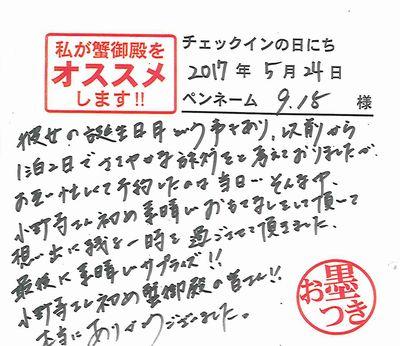 私が蟹御殿を
オススメ
します!!
チェックインの日にち
2017年 5月 24日
ペンネーム 9.18 様
彼女の誕生日月という事もあり、以前から
1泊2日でささやかな旅行をと考えておりましたが、
お互い忙しくて予約したのは当日…そんな中、
小野寺さん初め素晴しいおもてなしをして頂いて
想い出に残る一時を過ごさせて頂きました。
最後に素晴しいサプライズ!!
小野寺さん初め蟹御殿の皆さん!!
本当にありがとうございました。
お墨つき